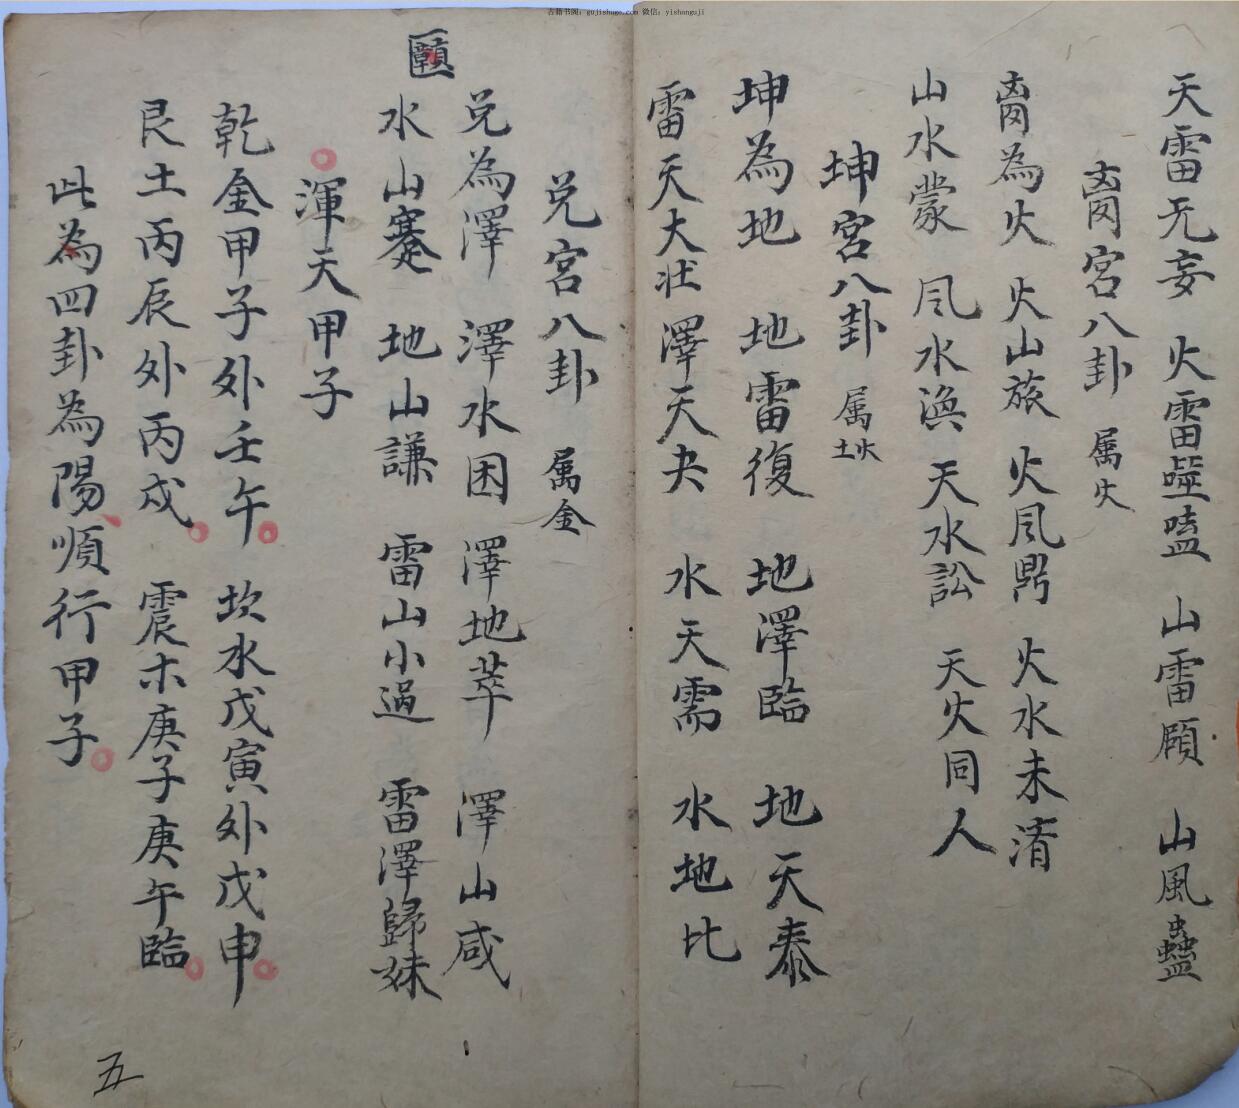 古籍书阁：gujishuge.com 微信：yishanguji
天雷无妄 火雷噬嗑 山雷頤 山風蠱
离宮八卦 属火
离為火 火山旅 火風鼎 火水未濟
山水蒙 風水渙 天水訟 天火同人
坤宮八卦 属土
坤為地 地雷復 地澤臨 地天泰
雷天大壯 澤天夬 水天需 水地比
兌宮八卦 属金
兌為澤 澤水困 澤地萃 澤山咸
水山蹇 地山謙 雷山小過 雷澤歸妹
渾天甲子
乾金甲子外壬午 坎水戊寅外戊申
艮土丙辰外丙戌 震木庚子庚午臨
此為四卦為陽順行甲子
五